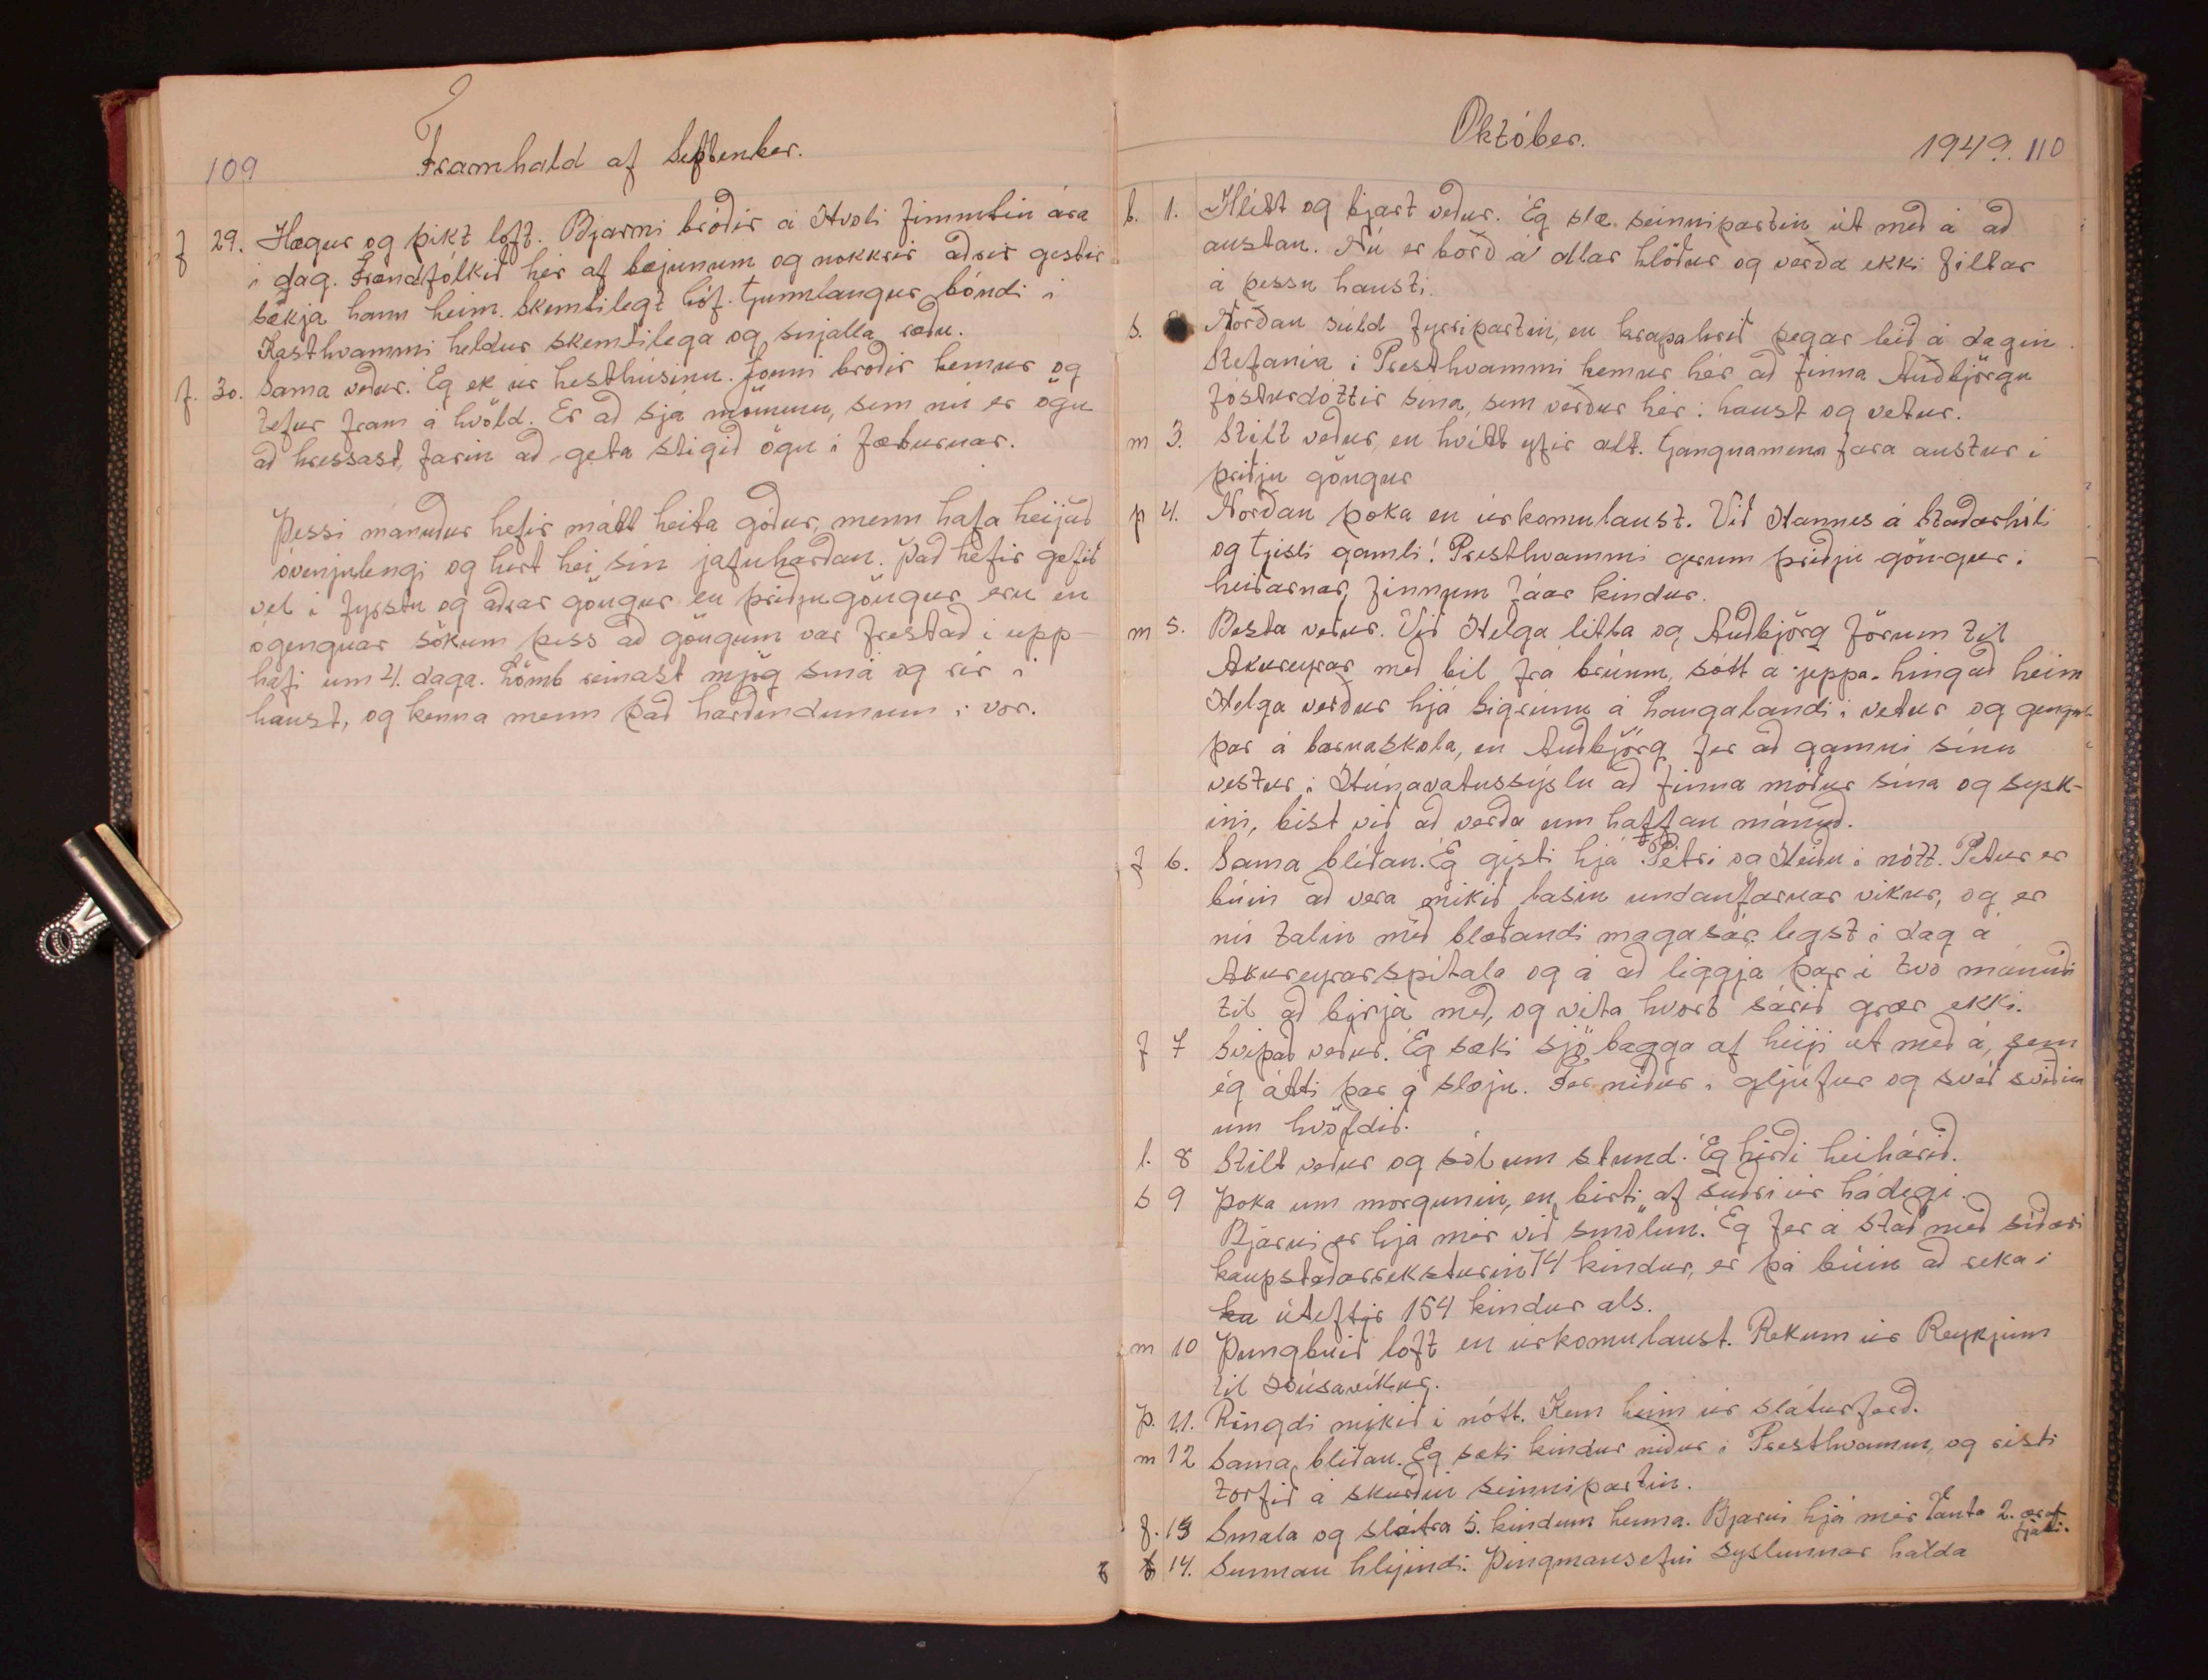 109
Framhald af September.
f 29. Hægur og þikt loft. Bjarni bróðir á Hvoli fimmtiu ára
í dag. Frændfólkið hér af bæjunum og nokkrir aðrir gestir
sækja hann heim. Skemtilegt hóf. Gunnlaugur bóndi í
Kasthvammi heldur skemtilega og snjalla ræðu.
f. 30. Sama veður. Ég ek úr hesthúsinu. Jonni bróðir kemur og
tefur fram á kvöld. Er að sjá mömmu, sem nú er ögn
að hressast, farin að geta stigið ögn í fæturnar.
Þessi mánuður hefir mátt heita góður, menn hafa heijað
óvenjulengi og hirt hei sín jafnharðan. Það hefir gefið
vel í fyrstu og aðrar göngur en þriðjugöngur eru en
ógengnar sökum þess að göngum var frestað í upp-
hafi um 4. daga. Lömb reinast mjög smá og rír í
haust, og kenna menn það harðindunum í vor.
Október.
1949. 110
l. 1. Hlítt og bjart veður. Ég slæ seinnipartin út með á að
austan. Nú er borð á allar hlöður og verða ekki filtar
á þessu hausti.
s. Norðan súld fyrripartin, en krapahríð þegar leið á dagin.
Stefanía í Presthvammi kemur hér að finna Auðbjörgu
fósturdóttir sína, sem verður hér í haust og vetur.
m 3. Stilt veður, en hvítt yfir alt. Gangnamenn fara austur í
þriðju göngur
þ 4. Norðan þoka en úrkomulaust. Við Hannes á Staðarhóli
og Gísli gamli í Presthvammi gerum þriðju göngur í
heiðarnar, finnum fáar kindur.
m 5. Besta veður. Við Helga litla og Auðbjörg förum til
Akureyrar með bíl frá brúnni, sótt á jeppa hingað heim
Helga verður hjá Sigrúnu á Laugalandi í vetur og gengur
þar á barnaskóla, en Auðbjörg fer að gamni sínu
vestur í Húnavatnssýslu að finna móður sína og sysk-
ini, bíst við að verða um hálfan mánuð.
f 6. Sama blíðan. Ég gisti hjá Pétri og Heiðu í nótt. Pétur er
búin að vera mikið lasin undanfarnar vikur, og er
nú talin með blæðandi magasár. legst í dag á
Akureyrarspítala og á að liggja þar í tvo mánuði
til að birja með, og vita hvort sárið grær ekki.
f 7 Svipað veður. Ég sæki sjö bagga af heiji út með á, sem
ég átti þar á slæju. Fer niður í gljúfur og svið sviðin
um kvöldið.
l. 8 Stilt veður og sól um stund. Ég hirði heihárið.
s 9 Þoka um morgunin, en birti af suðri úr hádegi.
Bjarni er hjá mér við smölun. Ég fer á stað með síðari
kaupstaðarreksturin 74 kindur, er þá búin að reka í
ka úteftir 154 kindur als.
m 10 Þungbúið loft en úrkomulaust. Rekum úr Reykjum
til Húsavíkur.
þ. 11. Ringdi mikið í nótt. Kem heim úr sláturferð.
m 12 Sama blíðan. Ég sæki kindur niður í Presthvamm, og risti
torfið á skurðin seinnipartin.
f. 13 Smala og slátra 5. kindum heima. Bjarni hjá mér Vanta 2. ær af
fjalli.
f 14. Sunnan hlíjindi. Þingmansefni syslunnar halda